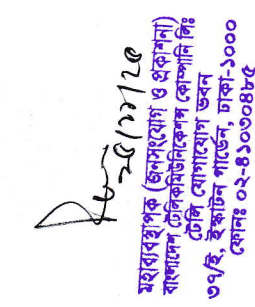 ২৫/১১/২৫
মহাব্যবস্থাপক (জনসংযোগ ও প্রকাশনা)
বাংলাদেশ টেলিকমিউনিকেশন্স কোম্পানি লিঃ
টেলি যোগাযোগ ভবন
৩৭/ই, ইস্কাটন গার্ডেন, ঢাকা-১০০০
ফোনঃ ০২-৪১০৩০৪৮৫